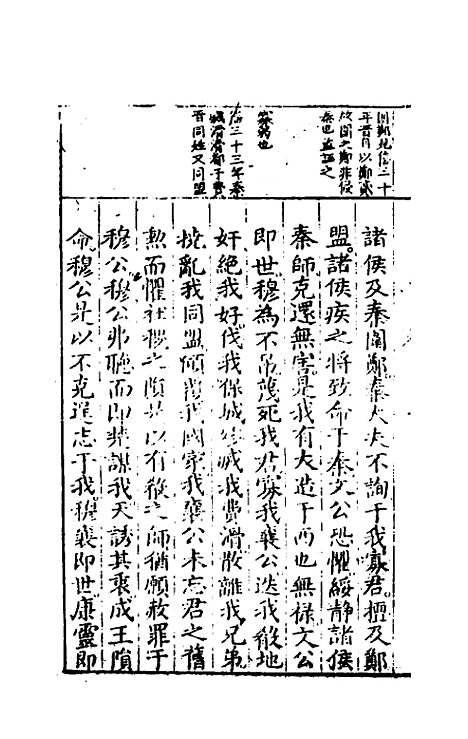 圍鄭見僖三十
年晉自以鄭貳
故圍之鄭非侵
秦也蓋誣之
寡弱也
僖三十三年秦
滅滑滑都于費
晉同姓又同盟
諸侯及秦圍鄭秦大夫不詢于我寡君擅及鄭
盟諸侯疾之將致命于秦文公恐懼綏靜諸侯
秦師克還無害是我有大造于西也無祿文公
即世穆為不吊蔑死我君寡我襄公迭我殽地
奸絕我好伐我保城殄滅我費滑散離我兄弟
撓亂我同盟傾覆我國家我襄公未忘君之舊
勲而懼社稷之隕是以有殽之師猶願赦罪于
穆公穆公弗聽而即楚謀我天誘其衷成王隕
命穆公是以不克逞志于我穆襄即世康靈即